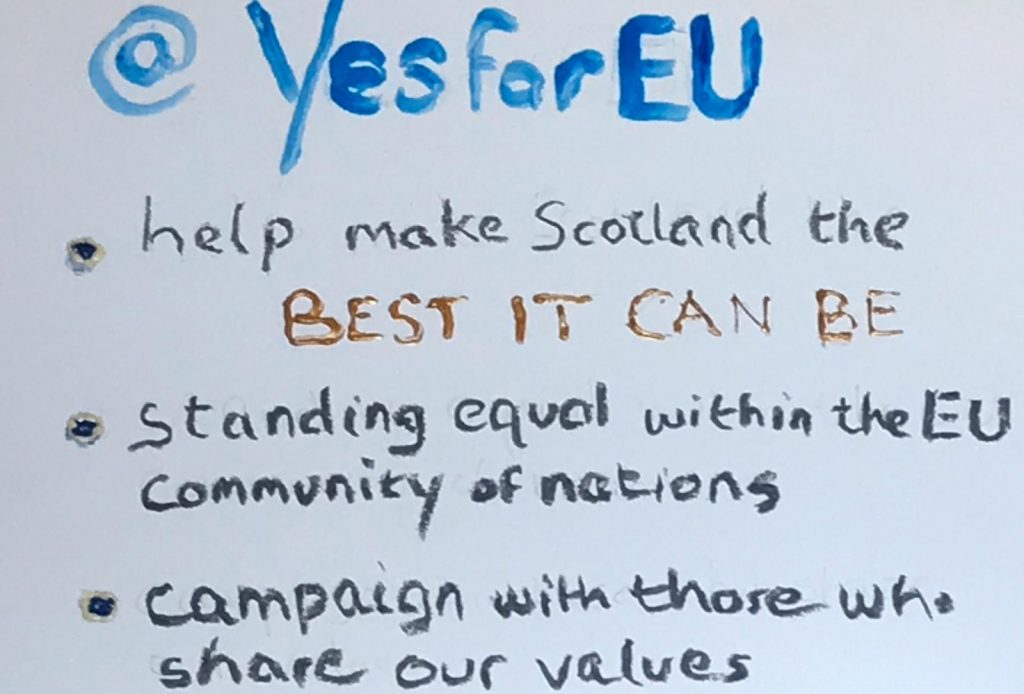 @YesforEU
• help make Scotland the
BEST IT CAN BE
• standing equal within the EU
community of nations
• campaign with those who
share our values